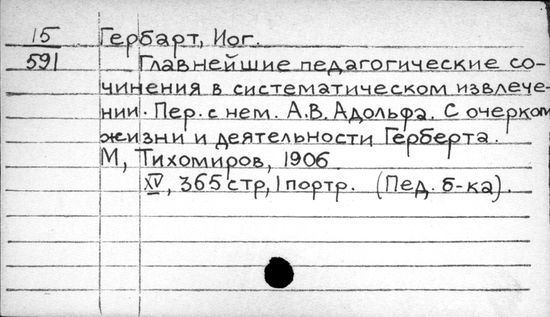 15 Гербарт, Иог.
591 Главнейшие педагогические со-
чинения в систематическом извлече-
нии. Пер. с нем. А.В. Адольфа. С очерком
жизни и деятельности Герберта.
М, Тихомиров, 1906
XV, 365 стр, 1 портр. (Пед. б-ка).